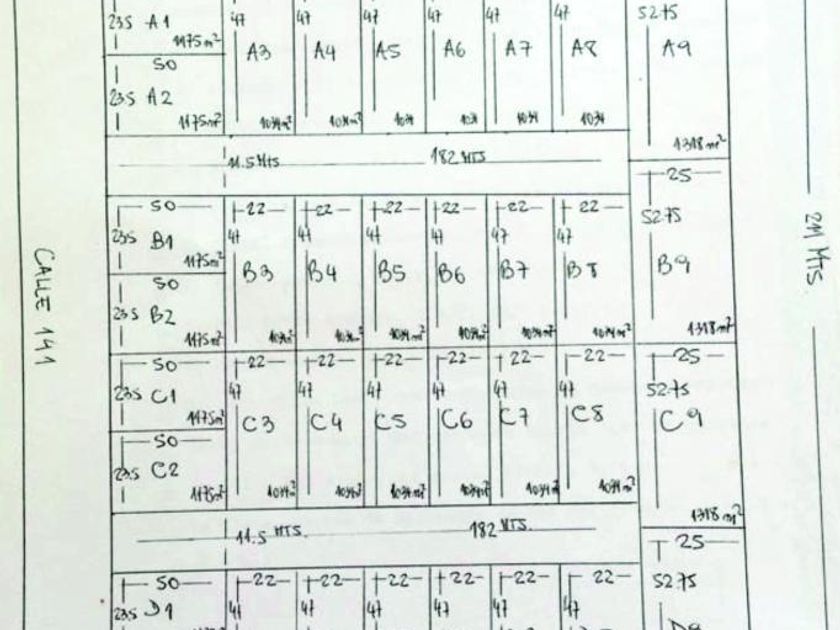 47 47 47 47 47 47 5275
23.5 A1 1175m²
A3 A4 A5 A6 A7 A8 A9
50
23.5 A2
1175m² 1034m² 1034m² 1034 1034 1034 1034
1318m²
11.5 Mts 182 MTS
25
50 22 22 22 22 22 22
5275
23.5 B1 47 47 47 47 47 47
1175m²
B3 B4 B5 B6 B7 B8 B9
50
23.5 B2
1175m² 1034m² 1034m² 1034m² 1034m² 1034m² 1034m² 1318m²
50 22 22 22 22 22 22 25
23.5 C1 47 47 47 47 47 47 5275
1175m²
C3 C4 C5 C6 C7 C8 C9
50
23.5 C2
1175m² 1034m² 1034m² 1034m² 1034m² 1034m² 1034m²
1318m²
11.5 MTS. 182 MTS.
25
50 22 22 22 22 22 22
5275
23.5 D1 47 47 47 47 47 47
D9
CALLE 141
211 MTS.